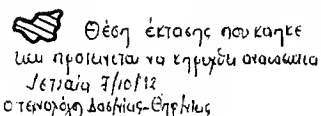 Θέση έκτασης που κάηκε
και προτείνεται να κηρυχθεί αναδασωτέα
7/10/12
Ο τεχνολόγος Δασονίας-Θηρονίας